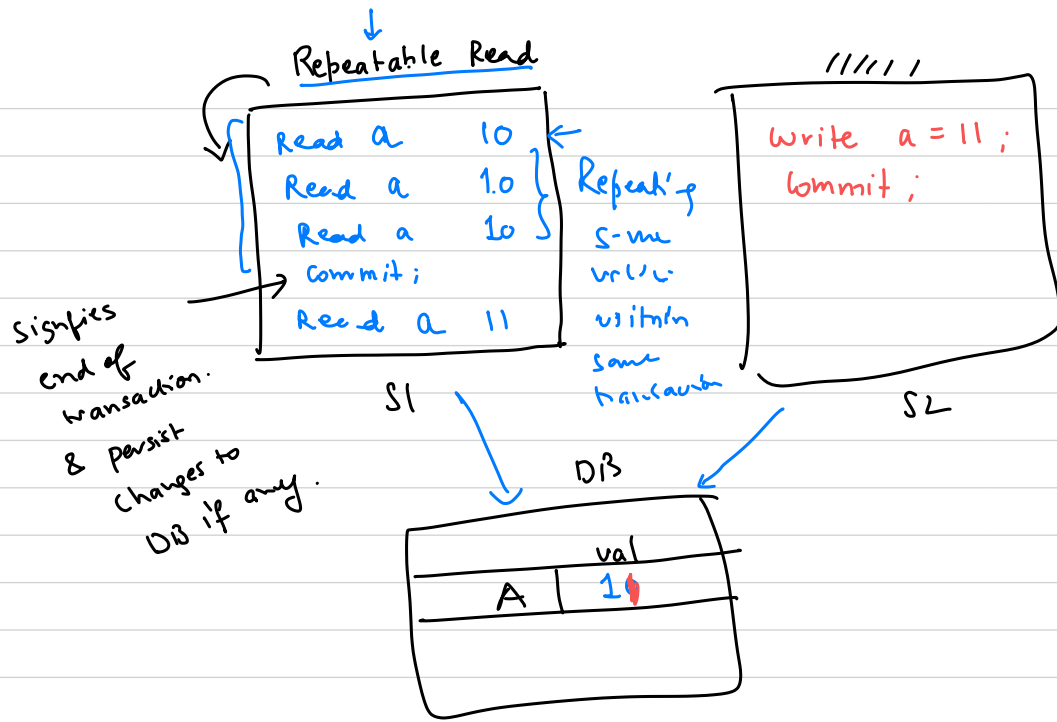 Repeatable Read
Read a 10
Read a 10
Read a 10
commit;
Read a 11
S1
Repeating
same
value
within
same
transaction
write a = 11;
commit;
S2
signfies
end of
transaction.
& persist
changes to
DB if any.
DB
val
A